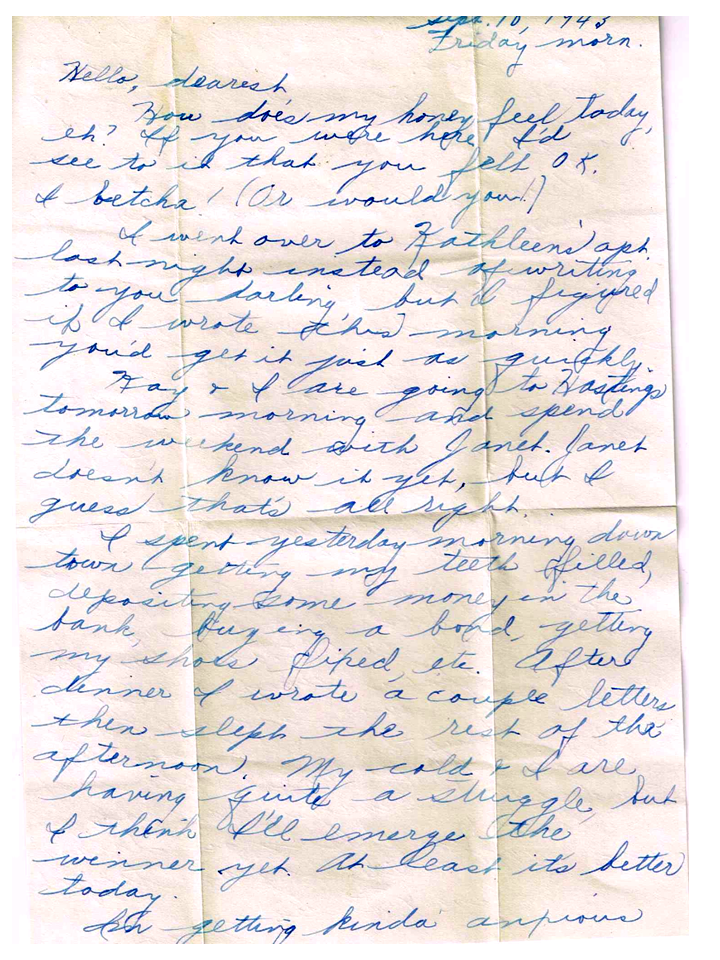 Sept. 10, 1943
Friday morn.
Hello, dearest
How does my honey feel today,
eh? If you were here I'd
see to it that you felt O.K.
I betcha! (Or would you!)
I went over to Kathleen's apt.
last night instead of writing
to you darling but I figured
if I wrote this morning
you'd get it just as quickly.
Kay & I are going to Hastings
tomorrow morning and spend
the weekend with Janet. Janet
doesn't know it yet, but I
guess that's all right.
I spent yesterday morning down
town getting my teeth filled,
depositing some money in the
bank, buying a bond, getting
my shoes fixed, etc. After
dinner I wrote a couple letters
then slept the rest of the
afternoon. My cold & I are
having quite a struggle, but
I think I'll emerge the
winner yet. At least it's better
today.
I'm getting kinda anxious